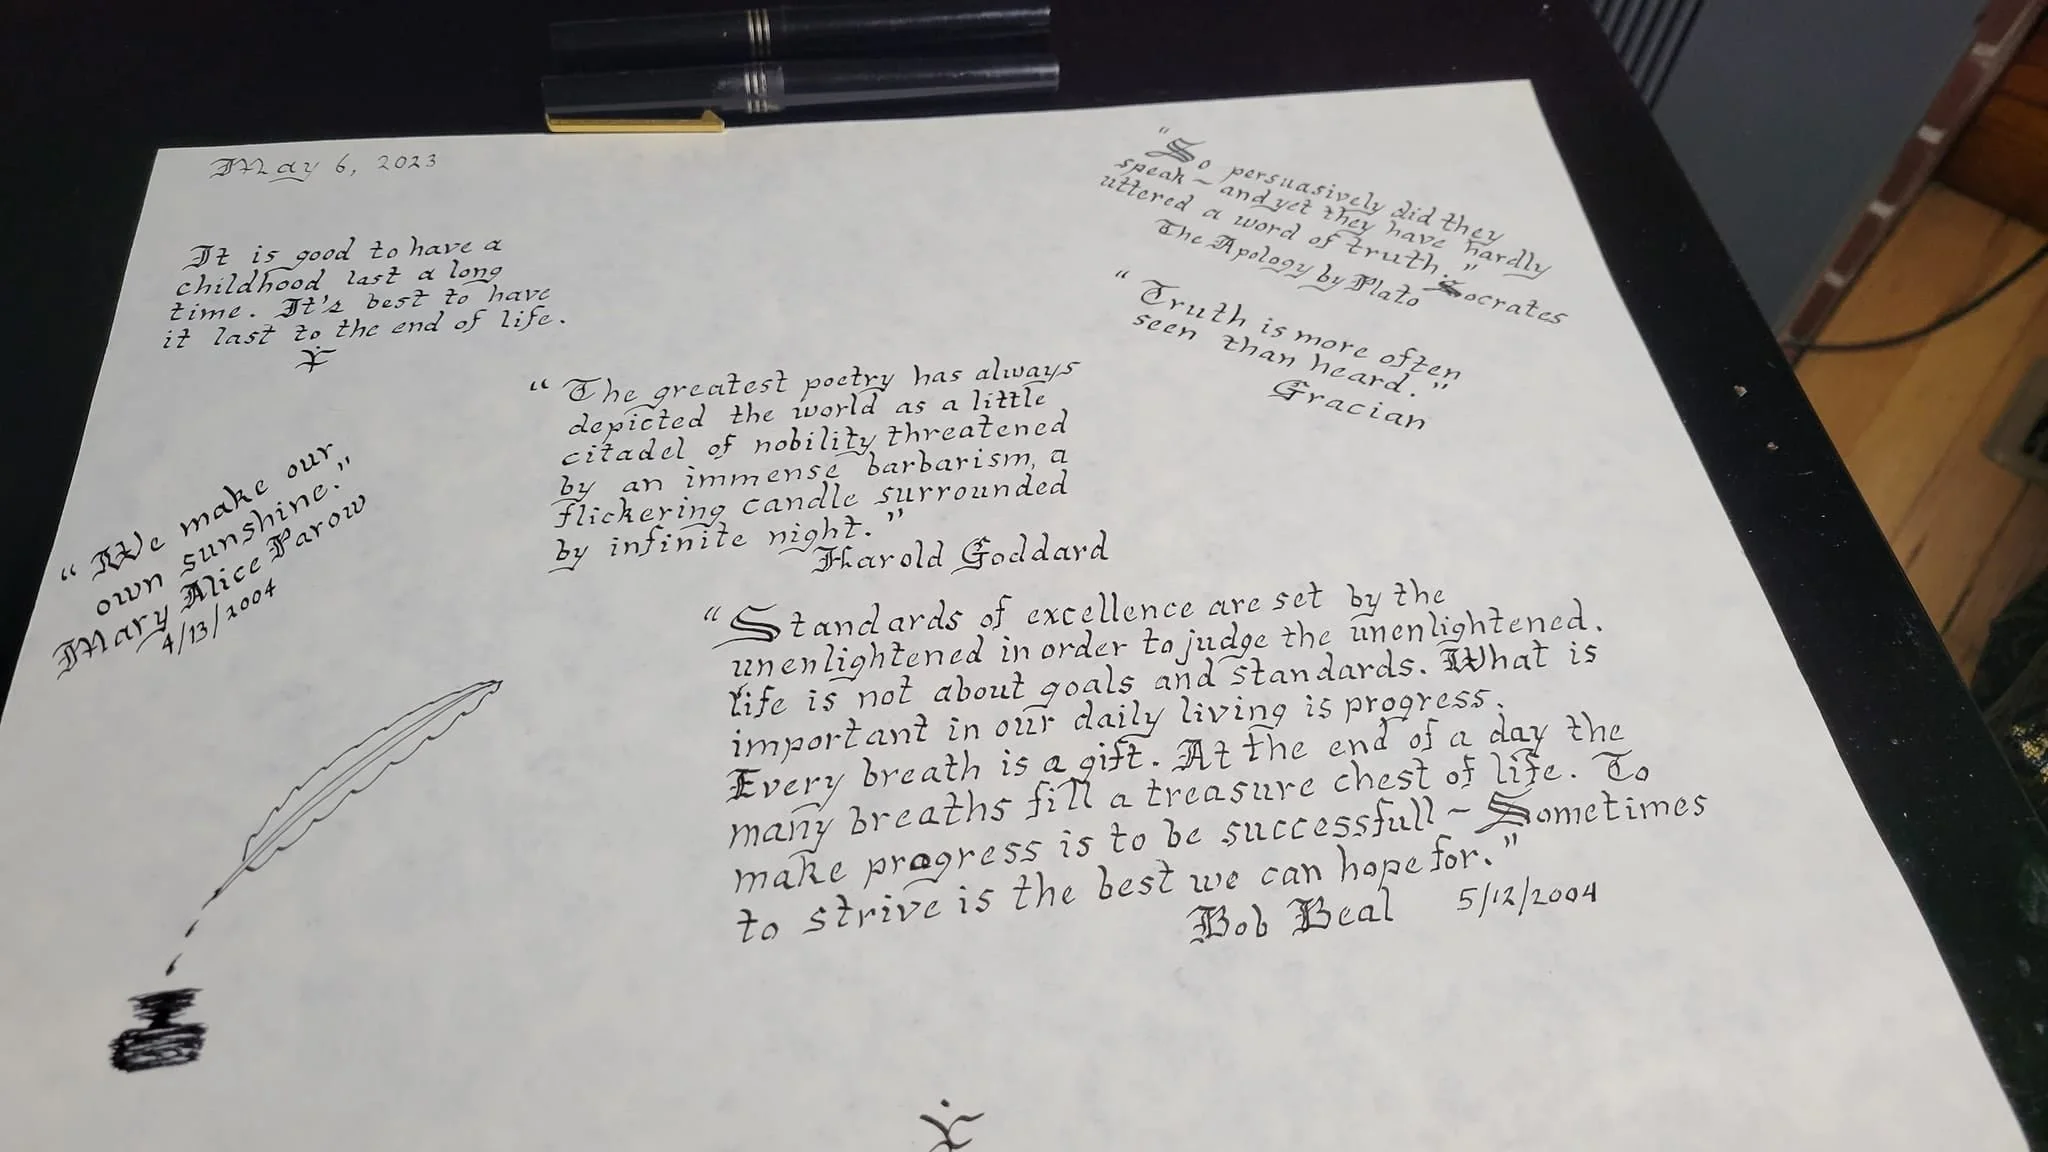 May 6, 2023
It is good to have a
childhood last a long
time. It's best to have
it last to the end of life.
"So persuasively did they
speak ~ and yet they have hardly
uttered a word of truth."
The Apology by Plato Socrates
"Truth is more often
seen than heard."
Gracian
"The greatest poetry has always
depicted the world as a little
citadel of nobility threatened
by an immense barbarism, a
flickering candle surrounded
by infinite night."
Harold Goddard
"We make our
own sunshine."
Mary Alice Parow
4/13/2004
"Standards of excellence are set by the
unenlightened in order to judge the unenlightened.
Life is not about goals and standards. What is
important in our daily living is progress.
Every breath is a gift. At the end of a day the
many breaths fill a treasure chest of life. To
make progress is to be successfull ~ Sometimes
to strive is the best we can hope for."
Bob Beal 5/12/2004